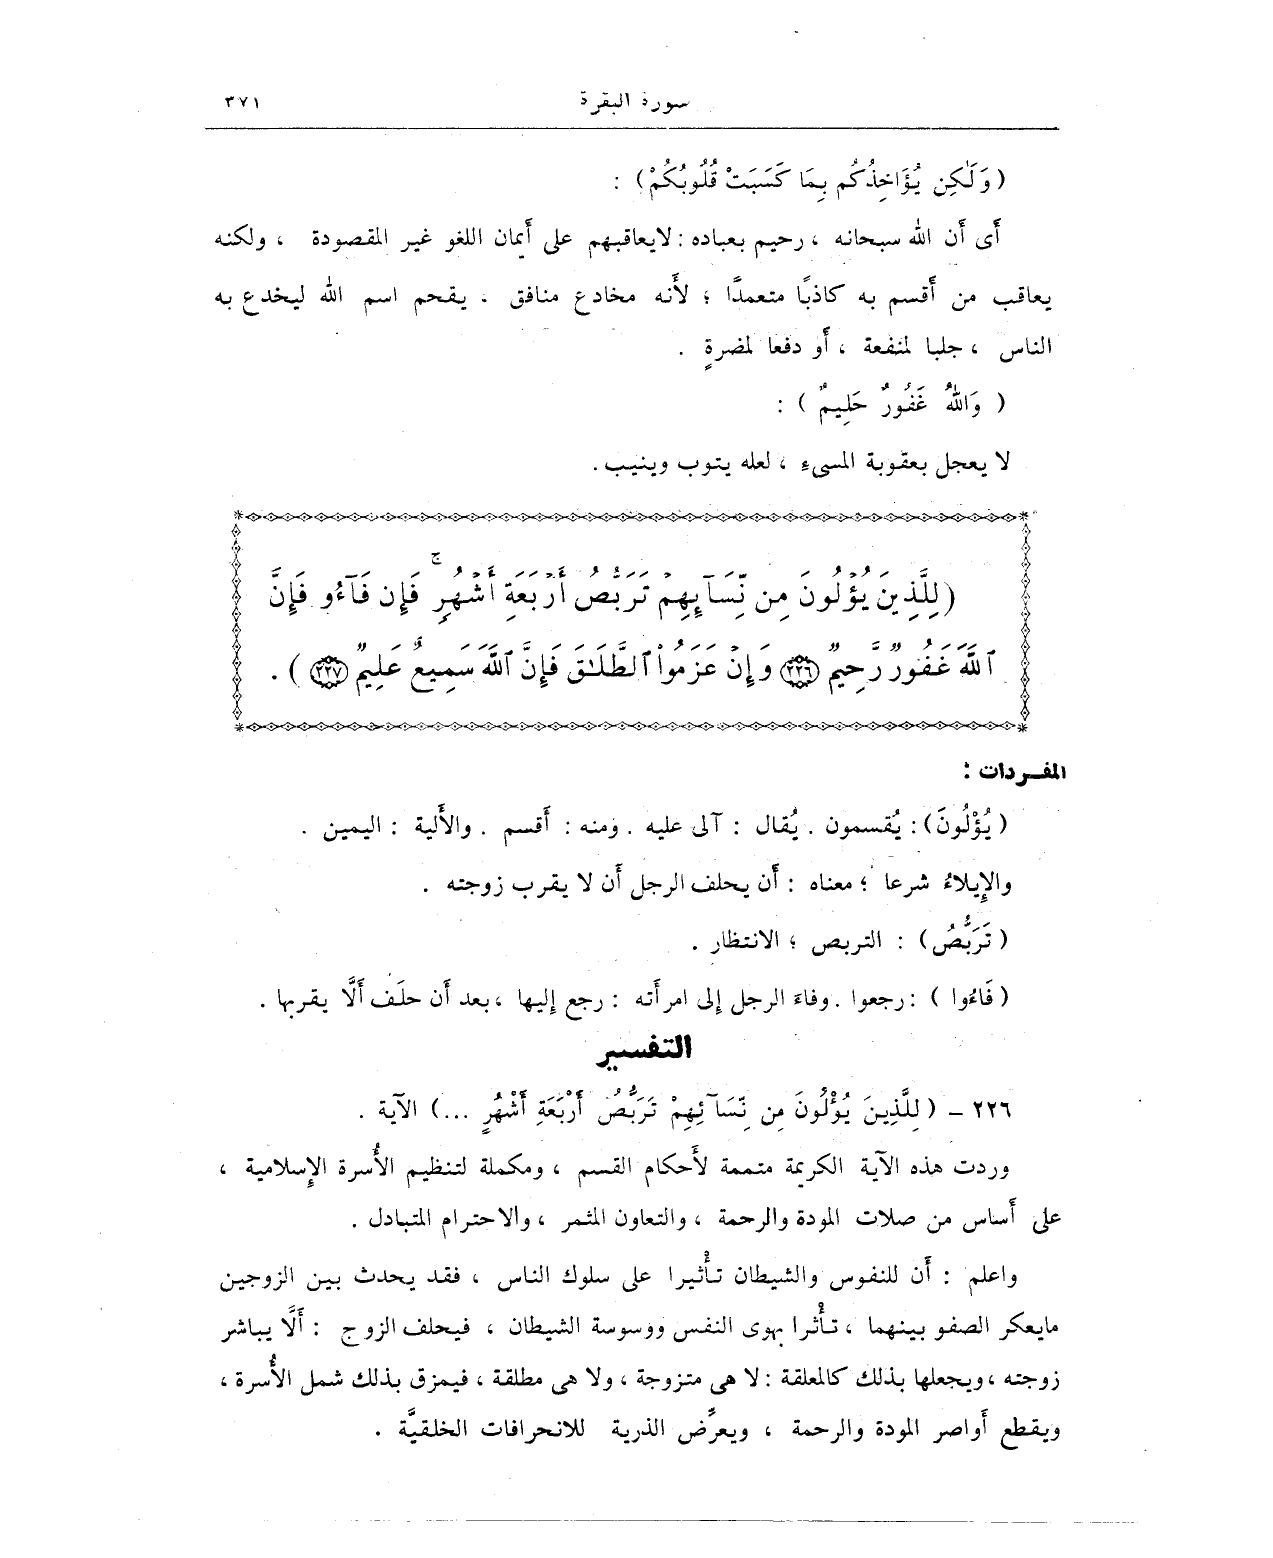 سورة البقرة ٣٧١
(وَلَٰكِن يُؤَاخِذُكُم بِمَا كَسَبَتْ قُلُوبُكُمْ) :
أى أن الله سبحانه ، رحيم بعباده : لايعاقبهم على أيمان اللغو غير المقصودة ، ولكنه
يعاقب من أقسم به كاذبًا متعمدًا ؛ لأنه مخادع منافق . يقحم اسم الله ليخدع به
الناس ، جلبا لمنفعة ، أو دفعا لمضرةٍ .
( وَاللهُ غَفُورٌ حَلِيمٌ ) :
لا يعجل بعقوبة المسىء ، لعله يتوب وينيب .
(لِلَّذِينَ يُؤْلُونَ مِن نِّسَآئِهِمْ تَرَبُّصُ أَرْبَعَةِ أَشْهُرٍۚ فَإِن فَآءُو فَإِنَّ
ٱللَّهَ غَفُورٌ رَّحِيمٌ (٢٢٦) وَإِنْ عَزَمُواْ ٱلطَّلَـٰقَ فَإِنَّ ٱللَّهَ سَمِيعٌ عَلِيمٌ (٢٢٧) ) .
المفـردات :
( يُؤْلُونَ) : يُقسمون . يُقال : آلى عليه . ومنه : أقسم . والأَلية : اليمين .
والإيلاءُ شرعا ؛ معناه : أن يحلف الرجل أن لا يقرب زوجته .
( تَرَبُّصُ ) : التربص ؛ الانتظار .
( فَاءُوا ) : رجعوا . وفاءَ الرجل إلى امرأته : رجع إليها ، بعد أن حلَف ألَّا يقربها .
التفسير
٢٢٦ – ( لِلَّذِينَ يُؤْلُونَ مِن نِّسَآئِهِمْ تَرَبُّصُ أَرْبَعَةِ أَشْهُرٍ ...) الآية .
وردت هذه الآية الكريمة متممة لأحكام القسم ، ومكملة لتنظيم الأُسرة الإسلامية ،
على أساس من صلات المودة والرحمة ، والتعاون المثمر ، والاحترام المتبادل .
واعلم : أن للنفوس والشيطان تأْثيرا على سلوك الناس ، فقد يحدث بين الزوجين
مايعكر الصفو بينهما ، تأْثرا بهوى النفس ووسوسة الشيطان ، فيحلف الزوج : ألَّا يباشر
زوجته ، ويجعلها بذلك كالمعلقة : لا هى متزوجة ، ولا هى مطلقة ، فيمزق بذلك شمل الأُسرة ،
ويقطع أواصر المودة والرحمة ، ويعرِّض الذرية للانحرافات الخلقيَّة .